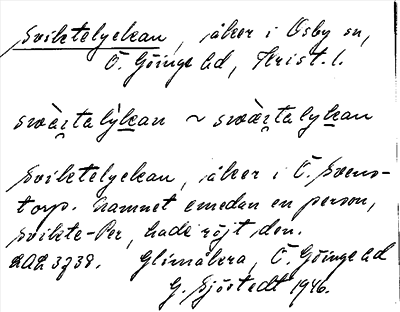 Sviktelyckan, åker i Osby sn,
Ö. Göinge hd, Krist. l.
swàṣtalỳkan ~ swàṣtalykan
Sviktelyckan, åker i Ö. Svens-
torp. Namnet emedan en person,
Svikte-Per, hade röjt den.
LAL 3738. Glimåkra, Ö. Göinge hd
G. Sjöstedt 1946.